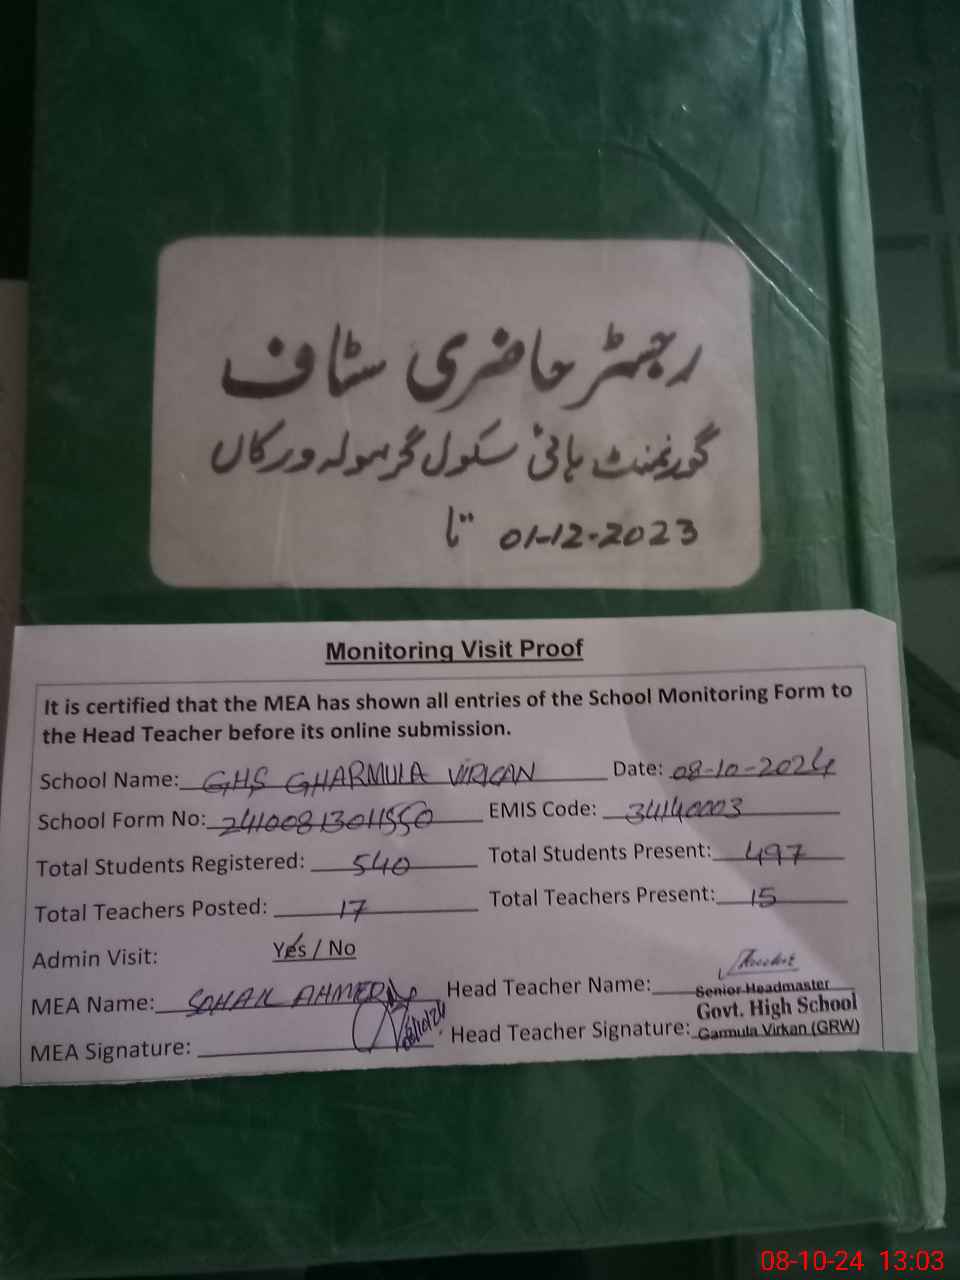 رجسٹر حاضری سٹاف
گورنمنٹ ہائی سکول گرمولہ ورکاں
01-12-2023 تا
Monitoring Visit Proof
It is certified that the MEA has shown all entries of the School Monitoring Form to
the Head Teacher before its online submission.
School Name: GHS GHARMULA VIRKAN Date: 08-10-2024
School Form No: EMIS Code: 34140003
Total Students Registered: 540 Total Students Present: 497
Total Teachers Posted: 17 Total Teachers Present: 15
Admin Visit: Yes / No
MEA Name: SOHAIL AHMED Head Teacher Name:
Senior Headmaster
Govt. High School
MEA Signature: Head Teacher Signature: Garmula Virkan (GRW)
08-10-24 13:03